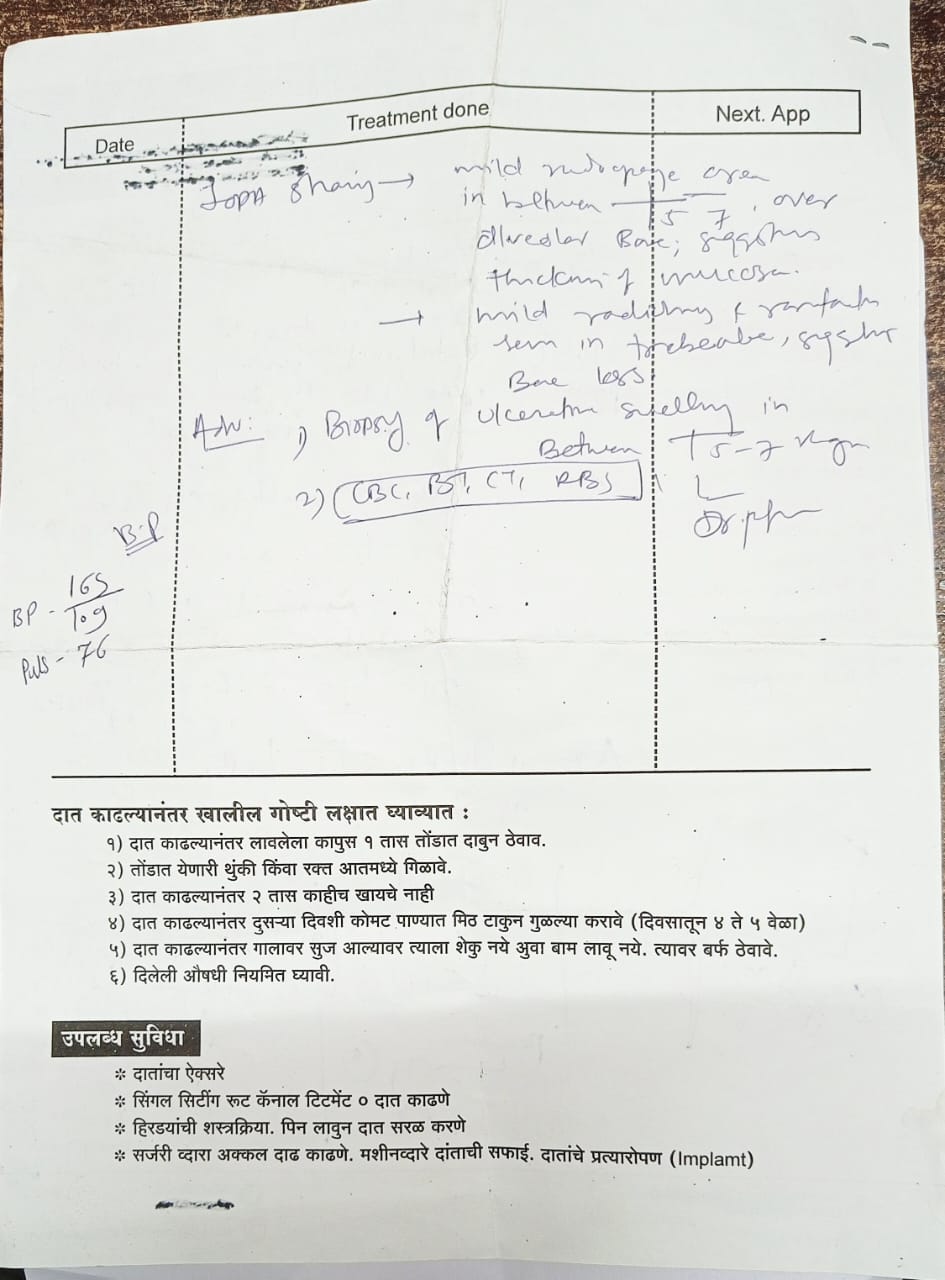 Date
Treatment done
Next. App
IOPA → mild area
in between 5 7, over
alveolar Bone;
of mucosa.
→ mild &
in
Bone loss
Adv: 1) Biopsy of swelling in
Between 5-7
2) CBC, BT, CT, RBS
B.P
BP - 165/109
Puls - 76
दात काढल्यानंतर खालील गोष्टी लक्षात घ्याव्यात :
१) दात काढल्यानंतर लावलेला कापुस १ तास तोंडात दाबुन ठेवाव.
२) तोंडात येणारी थुंकी किंवा रक्त आतमध्ये गिळावे.
३) दात काढल्यानंतर २ तास काहीच खायचे नाही
४) दात काढल्यानंतर दुसऱ्या दिवशी कोमट पाण्यात मिठ टाकुन गुळल्या करावे (दिवसातून ४ ते ५ वेळा)
५) दात काढल्यानंतर गालावर सुज आल्यावर त्याला शेकु नये अुवा बाम लावू नये. त्यावर बर्फ ठेवावे.
६) दिलेली औषधी नियमित घ्यावी.
उपलब्ध सुविधा
* दातांचा ऐक्सरे
* सिंगल सिटींग रूट कॅनाल टिटमेंट ० दात काढणे
* हिरडयांची शस्त्रक्रिया. पिन लावुन दात सरळ करणे
* सर्जरी व्दारा अक्कल दाढ काढणे. मशीनव्दारे दांताची सफाई. दातांचे प्रत्यारोपण (Implamt)